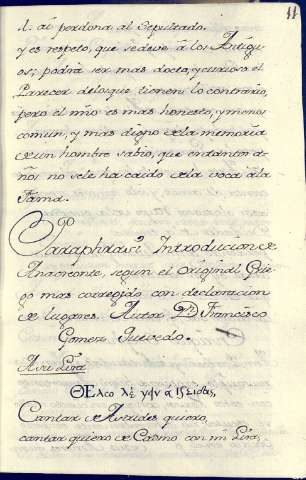 11
l. aí perdona al Sepultado.
y es respeto, que sedeve á los Antig̃u
os; podrá ser mas docto, y curioso el
Parecer delosque tienen lo contrario,
pero el mío es mas honesto, y menos
comun, y mas digno dela memoria
deun hombre sabio, que entantos a-
ños no sele ha caido dela voca ála
Fama.
Paraphrasi, Introducion de
Anacreonte, segun el Original Grie-
go mas corregido con declaracion
de lugares. Autor Dn. Francisco
Gomez Quevedo.
Asu Lira
ΘΕλεο
Cantar de Atrides quiero,
cantar quiero de Cadmo con mi Lira,